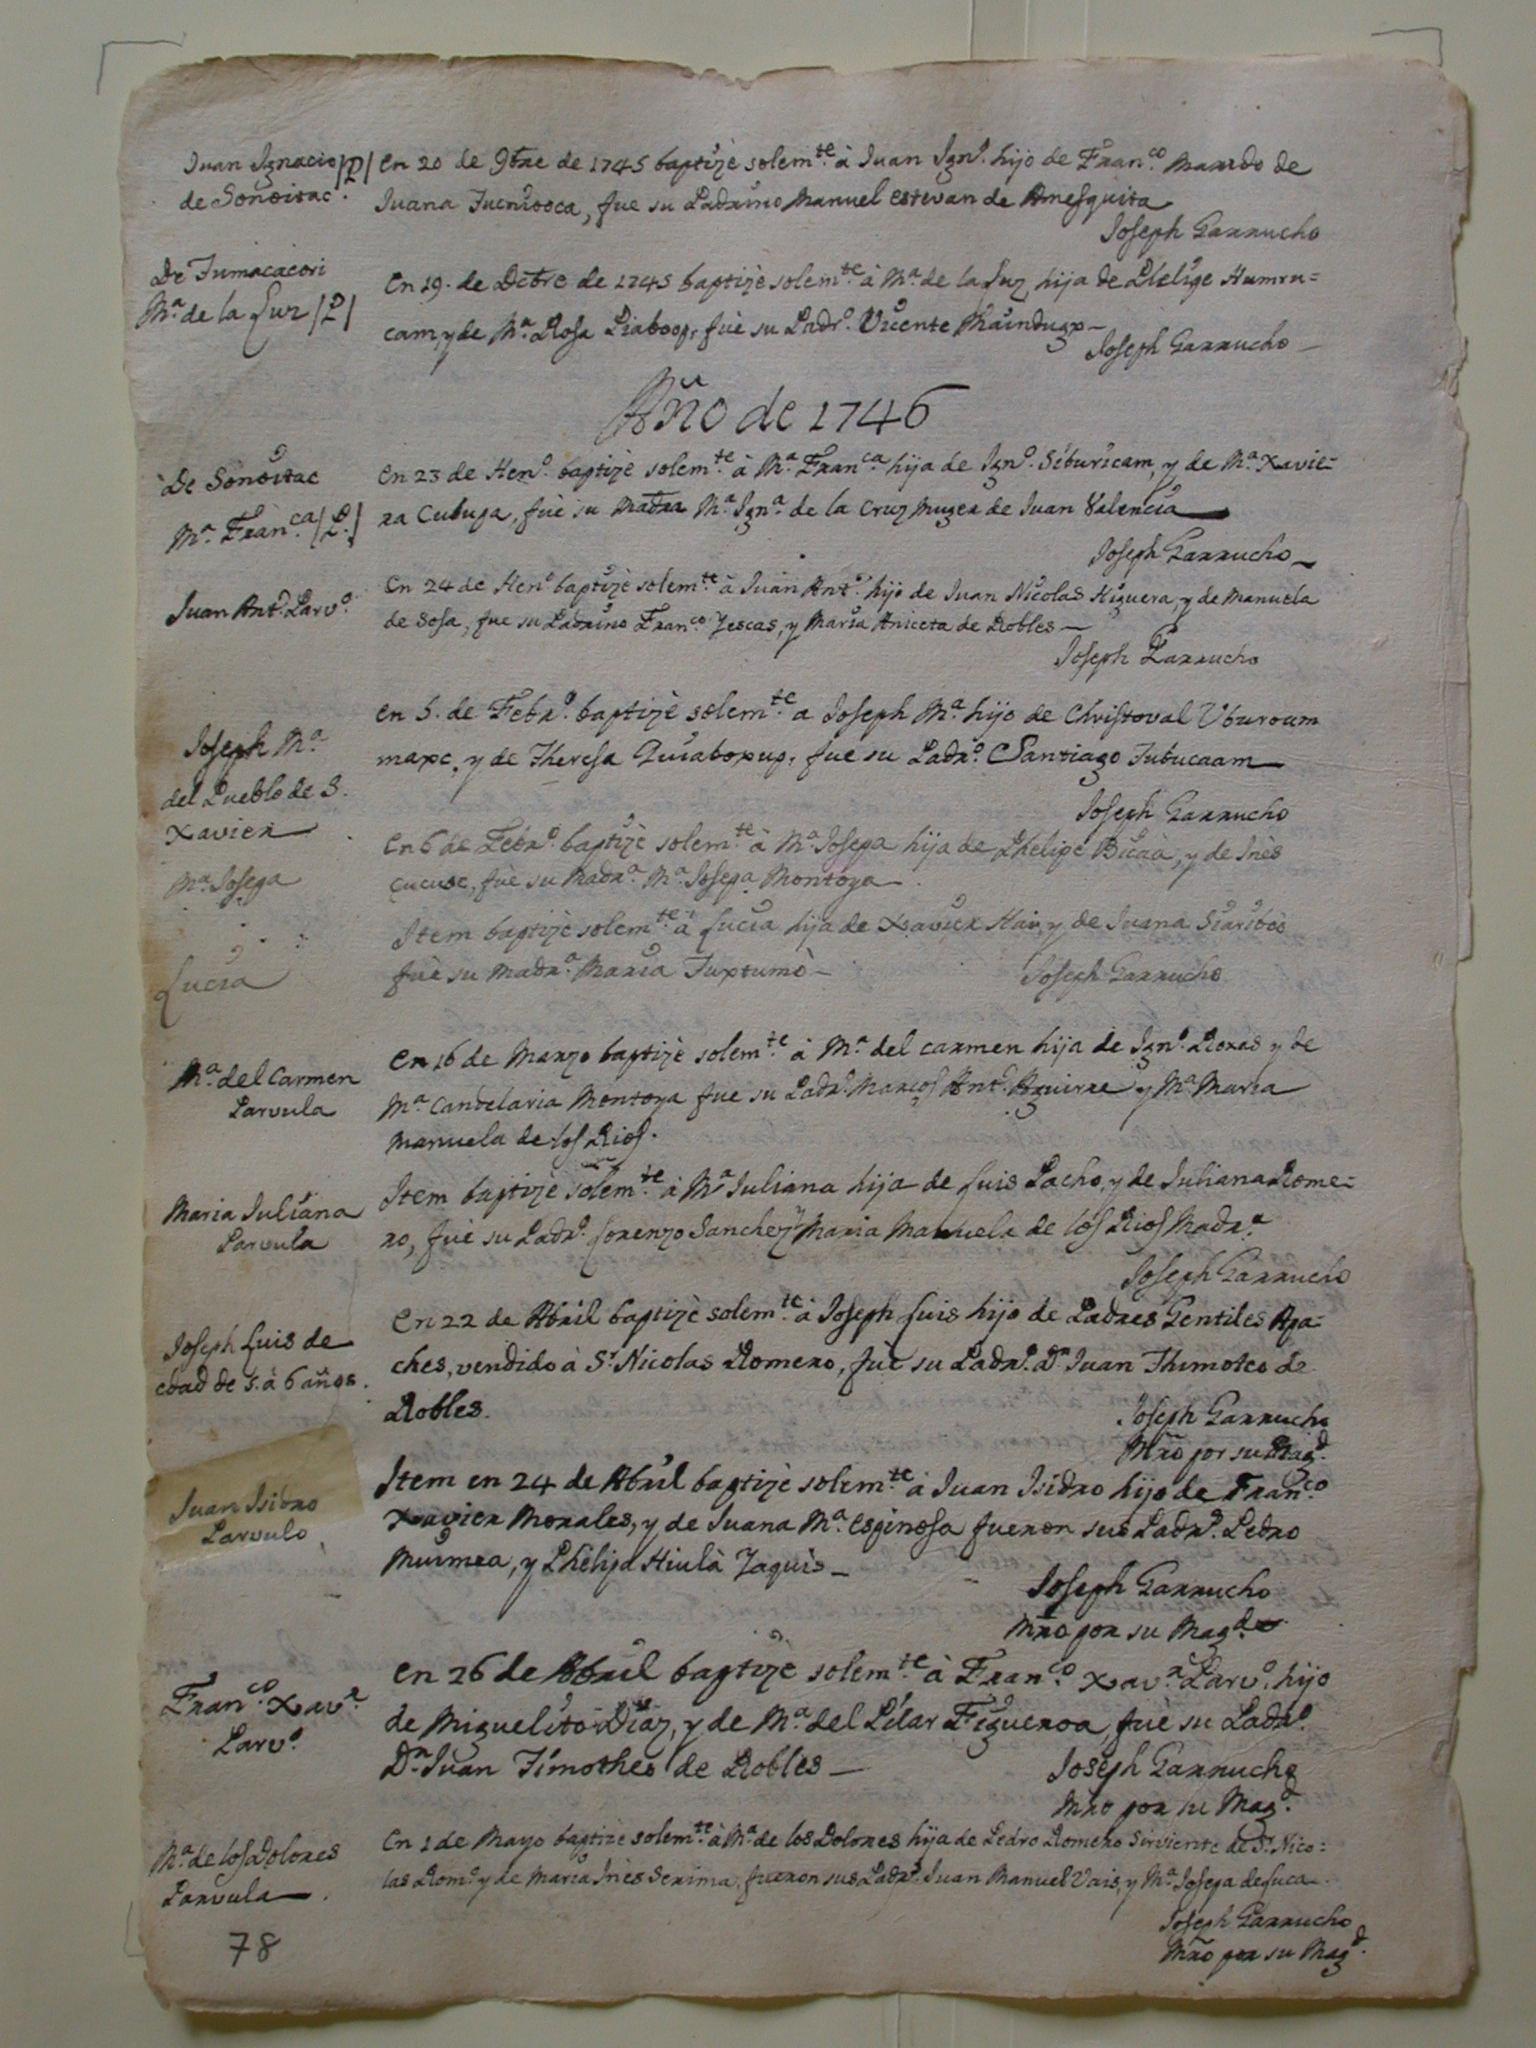 Juan Ignacio /P/
de Sonoitac.
En 20 de 9bre de 1745 baptizè solemte. à Juan Ign.o hijo de Franco. Marido de
Juana Tucniooca, fue su Padrino Manuel Estevan de Amesquita
Joseph Garrucho
De Tumacacori
Ma. de la Luz /P/
En 19. de Debre de 1745 baptizè solemte. à Ma. de la Luz hija de Phelipe Humru=
cam, y de Ma. Rosa Piaboop, fuè su Padro. Vicente
Joseph Garrucho
Año de 1746
De Sonoitac
Ma. Franca. /P./
En 23 de Heno. baptizè solemte. à Ma. Franca. hija de Igno. Siburicam, y de Ma. Xavie=
ra Cubupa, fuè su Madra Ma. Igna. de la Cruz Muger de Juan Valencia
Joseph Garrucho
Juan Anto. Parvo.
En 24 de Heno. baptizè solemte. à Juan Anto. hijo de Juan Nicolas Higuera, y de Manuela
de Sosa, fue su Padrino Franco. Yescas, y Maria Aniceta de Robles
Joseph Garrucho
Joseph Ma.
del Pueblo de S.
Xavier
En 5. de Febro. baptizè solemte. a Joseph Ma. hijo de Christoval Uburoum
marc, y de Theresa Quiaboxup, fue su Padro. Santiago Tubucaam
Joseph Garrucho
Ma. Josepa
En 6 de Febro. baptizè solemte. à Ma. Josepa hija de Phelipe Bicaà, y de Inès
Cucuse, fuè su Madra. Ma. Josepa Montoya
Lucia
Item baptizè solemte. à Lucia hija de Xavier Hai, y de Juana Siariboò
fuè su Madra. Maria Tuxtumò
Joseph Garrucho
Ma. del Carmen
Parvula
En 16 de Marzo baptizè solemte. à Ma. del Carmen hija de Igno. Roxas y de
Ma. Candelaria Montoya fue su Padro. Marcos Anto. Aguirre y Ma. Maria
Manuela de los Rios.
Maria Juliana
Parvula
Item baptizè solemte. à Ma. Juliana hija de Luis Pacho, y de Juliana Rome=
ro, fuè su Padro. Lorenzo Sanchez y Maria Manuela de los Rios Madra.
Joseph Garrucho
Joseph Luis de
edad de 5. à 6 años.
En 22 de Abril baptizè solemte. à Joseph Luis hijo de Padres Gentiles Apa=
ches, vendido à Sr. Nicolas Romero, fuè su Padro. Dn. Juan Thimoteo de
Robles.
Joseph Garrucho
Mro por su Magd.
Juan Isidro
Parvulo
Item en 24 de Abril baptizè solemte. à Juan Isidro hijo de Franco.
Xavier Morales, y de Juana Ma. Espinosa fueron sus Padro. Pedro
Muimea, y Phelipa Hiulà Yaquìs
Joseph Garrucho
Mro por su Magd.
Franco. Xavr.
Parvo.
En 26 de Abril baptizè solemte. à Franco. Xavr. Parvo. hijo
de Miguelito Diaz, y de Ma. del Pilar Figueroa, fuè su Padro.
Dn. Juan Timotheo de Robles
Joseph Garrucho
Mro por su Magd.
Ma. de los Dolores
Parvula
En 1 de Mayo baptizè solemte. à Ma. de los Dolores hija de Pedro Romero Sirviente de Sr. Nico=
las Romo. y de Maria Inès Serima, fueron sus Padrs. Juan Manuel Vais, y Ma. Josepa de Luca
Joseph Garrucho
Mro por su Magd.
78